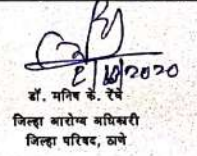 2/10/2020
डॉ. मनिष के. रेंघे
जिल्हा आरोग्य अधिकारी
जिल्हा परिषद, ठाणे